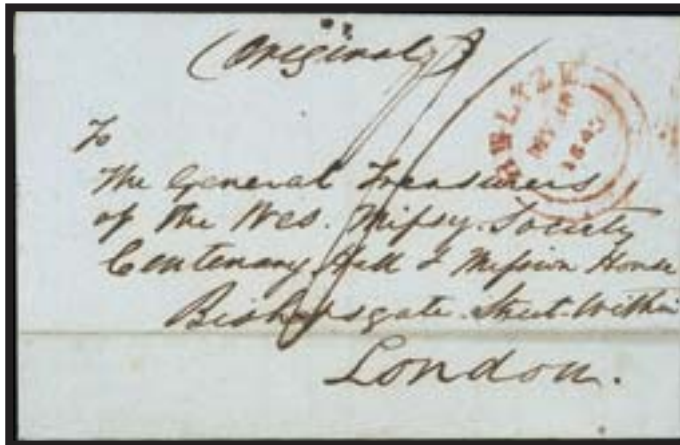 (Original)
BELIZE
1843
To
The General Treasurers
of the Wes. Missy. Society
Centenary Hall & Mission House
Bishopsgate Street Within
London.